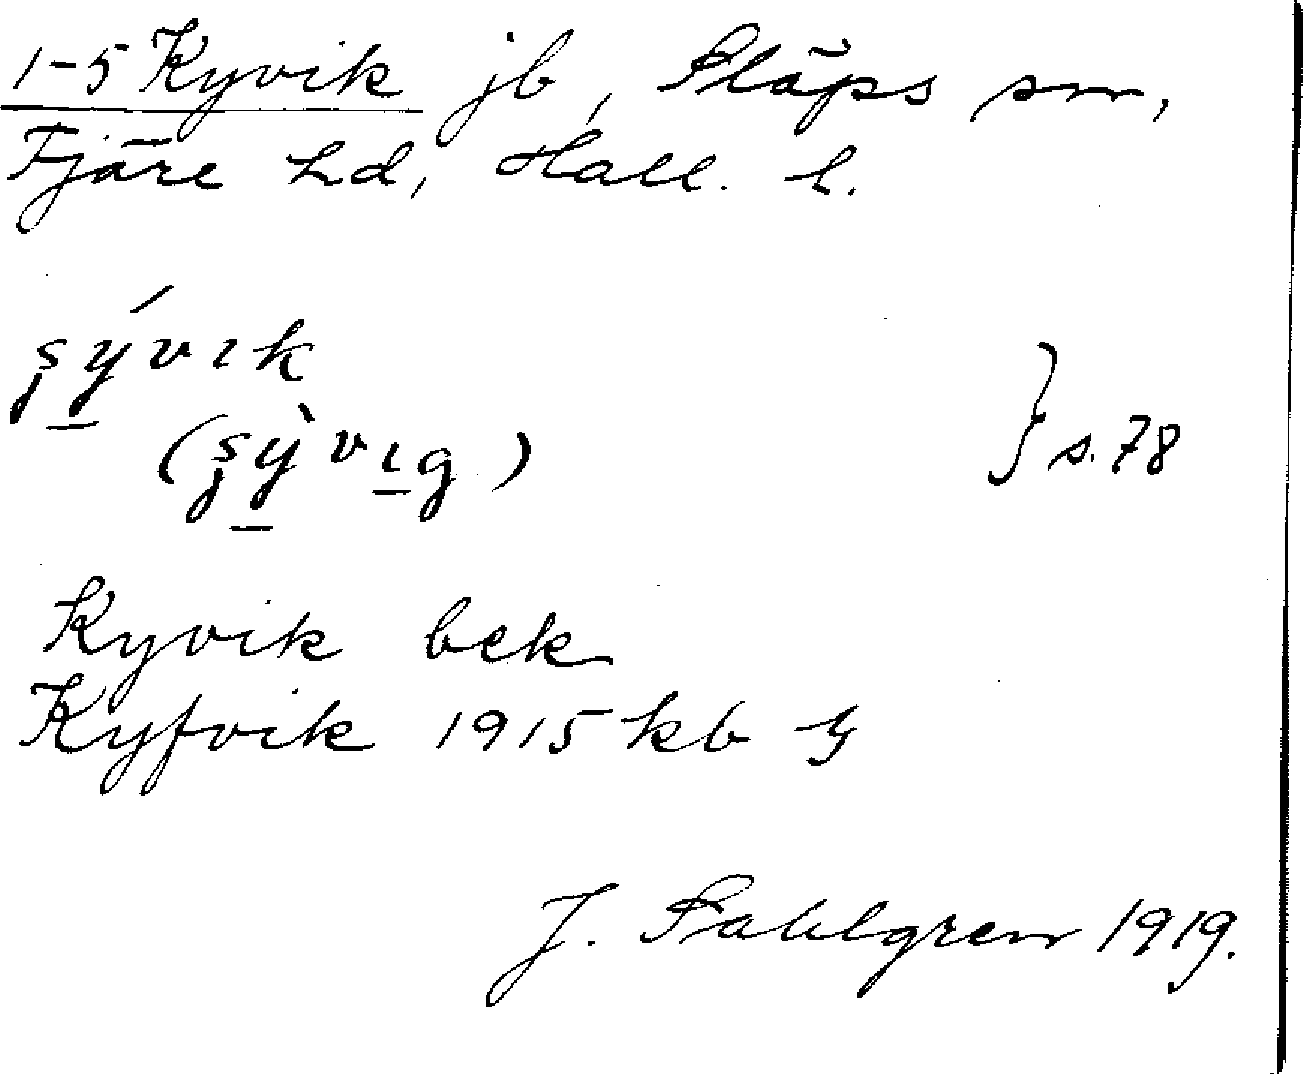 1-5 Kyvik jb, Släps sn,
Fjäre hd, Hall. l.
s̡ývɪk
(s̡ỳvɪg) } s. 78
Kyvik bek
Kyfvik 1915 kb
J. Sahlgren 1919.